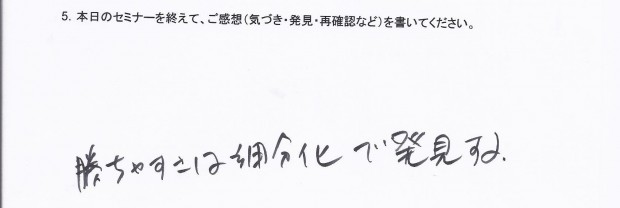 5. 本日のセミナーを終えて、ご感想（気づき・発見・再確認など）を書いてください。
勝ちやすさは細分化で発見する.